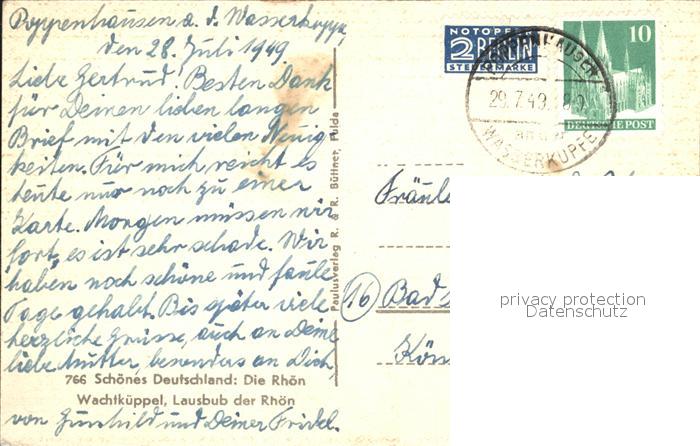 Poppenhausen a. d. Wasserkuppe,
den 28. Juli 1949
Liebe Gertrud! Besten Dank
für Deinen lieben langen
Brief mit den vielen Neuig
keiten. Für mich reicht es
heute nur noch zu einer
Karte. Morgen müssen wir
fort, es ist sehr schade. Wir
haben noch schöne und faule
Tage gehabt. Bis später viele
herzliche Grüsse, auch an Deine
liebe Mutter, besonders an Dich,
766 Schönes Deutschland: Die Rhön
Wachtküppel, Lausbub der Rhön
von Gunhild und Deiner Fridel.
Paulusverlag R. & R. Büttner, Fulda
NOTOPFER
2 BERLIN
STEUERMARKE
POPPENHAUSEN
29.7.49
WASSERKUPPE
10
DEUTSCHE POST
Fräule
(16) Bad
privacy protection
Datenschutz